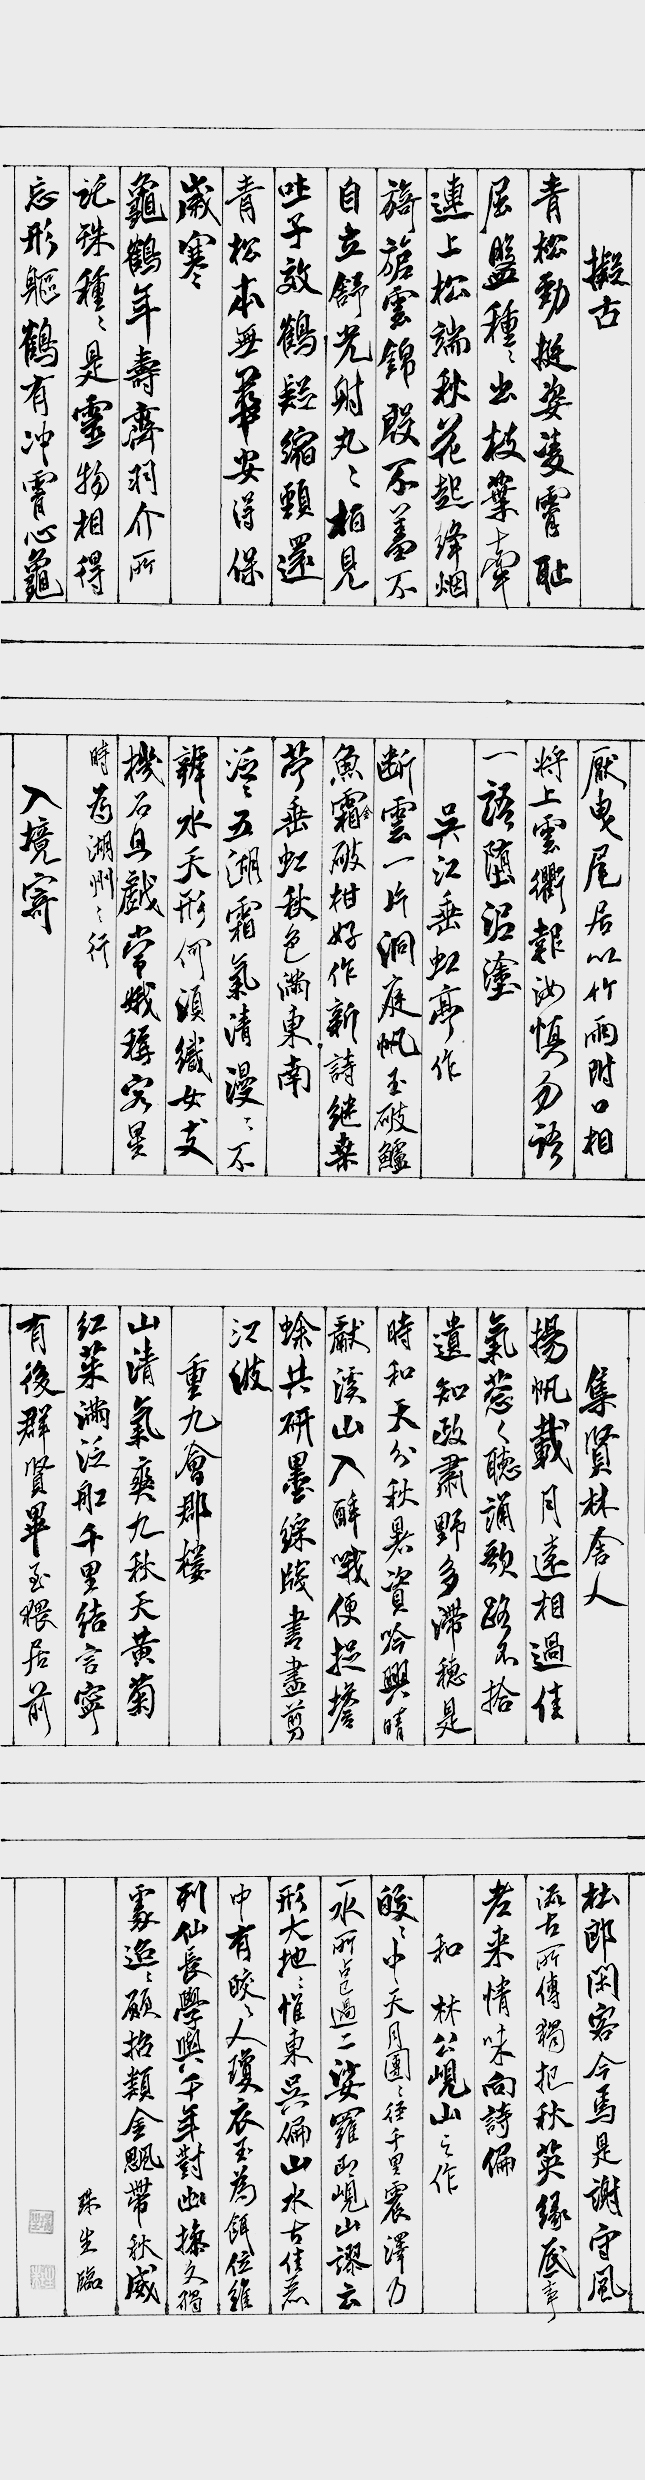 擬古
青松勁挺姿凌霄恥
屈盤種〻出枝葉牽
連上松端秋花起絳烟
旖旎雲錦殷不羞不
自立舒光射丸〻柏見
吐子效鶴疑縮頸還
青松本無華安得保
歲寒
龜鶴年壽齊羽介所
託殊種〻是靈物相得
忘形軀鶴有冲霄心龜
厭曳尾居以竹兩附口相
將上雲衢報汝慎勿語
一語墮泥塗
吳江垂虹亭作
断雲一片洞庭帆玉破鱸
魚霜金破柑好作新詩継桑
苧垂虹秋色滿東南
泛〻五湖霜氣清漫〻不
辨水天形何須織女支
機石且戲常娥稱客星
時為湖州之行
入境寄
集賢林舍人
揚帆載月遠相過佳
氣葱〻聴誦歌路不拾
遺知政肅野多滯穗是
時和天分秋暑資吟興晴
獻溪山入醉哦便捉蟾
蜍共研墨綵牋書盡剪
江波
重九會郡樓
山清氣爽九秋天黄菊
红茱滿泛船千里結言寧
有後群賢畢至猥居前
杜郎閑客今焉是謝守風
流古所傳獨把秋英緣底事
老来情味向詩偏
和林公峴山之作
皎〻中天月團〻徑千里震澤乃
一水所占已過二娑羅即峴山謬云
形大地〻惟東吳偏山水古佳麗
中有皎〻人瓊衣玉為餌位維
列仙長學與千年對幽操久獨
處迢〻願招類金飈帶秋威
珠生臨